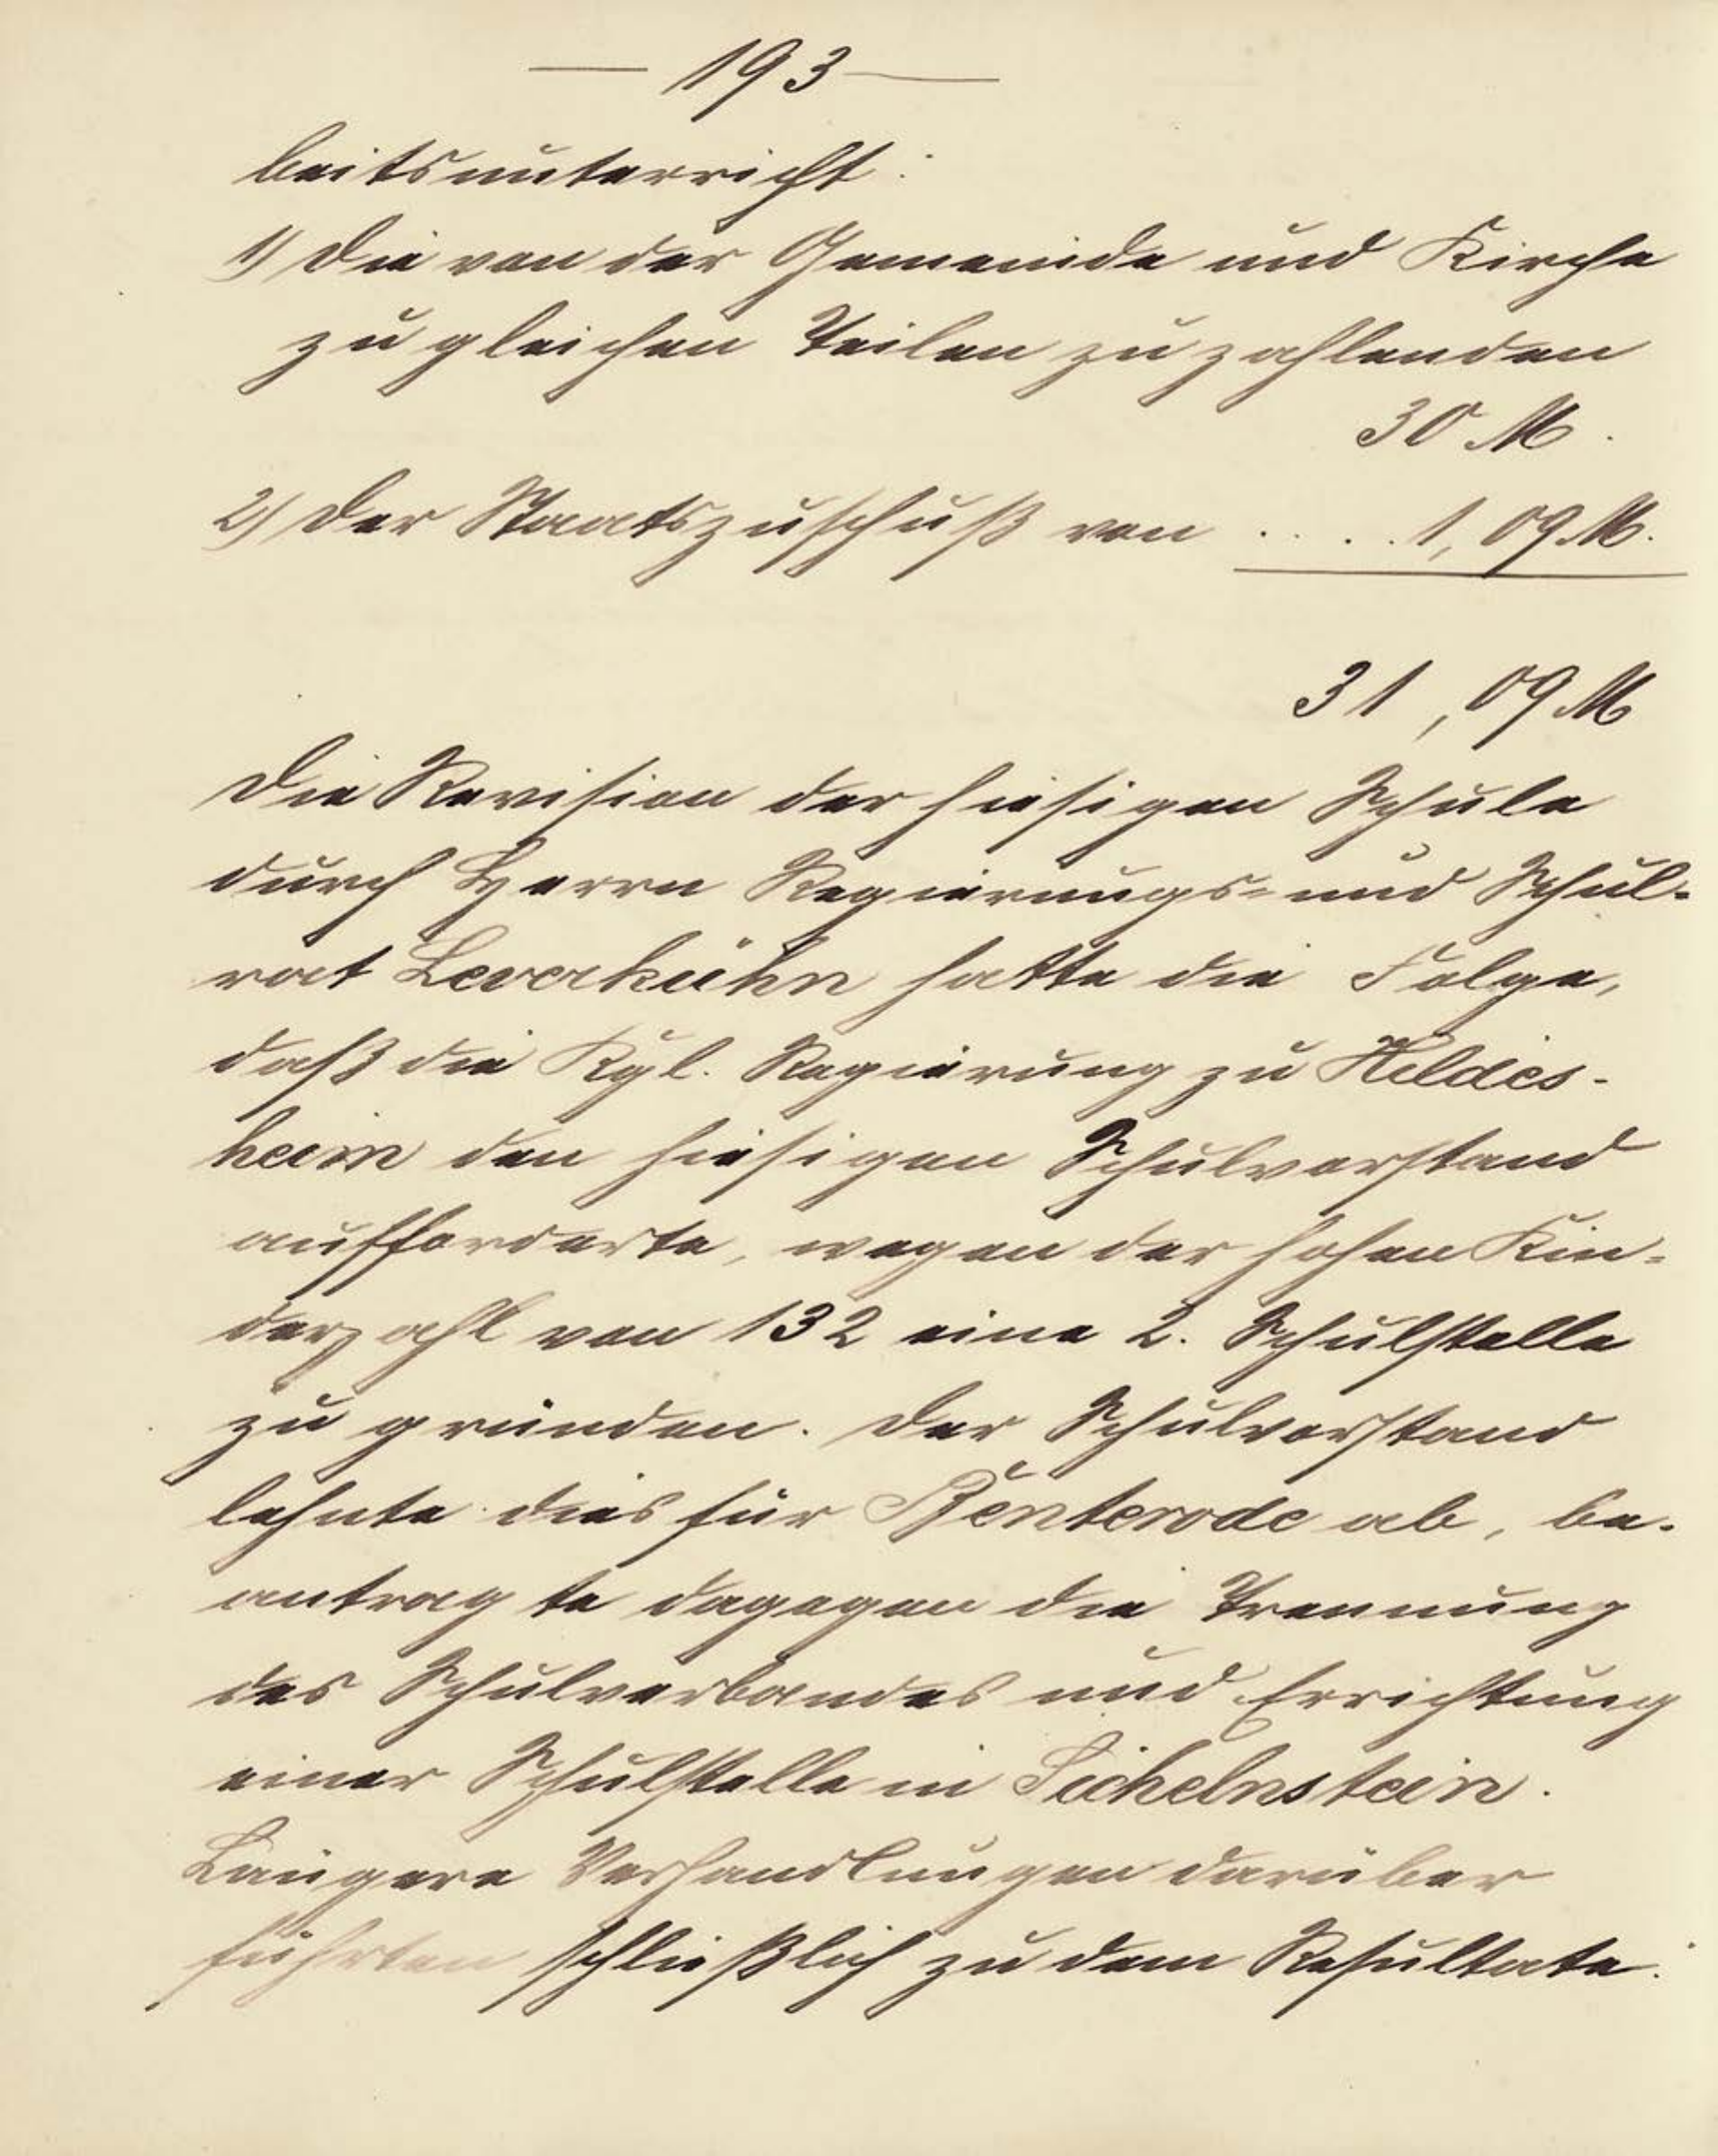 — 193 —
beitsunterricht:
1) Die von der Gemeinde und Kirche
zu gleichen Teilen zu zahlenden
30 M.
2) Der Staatszuschuß von .... 1,09 M.
31,09 M
Die Revision der hiesigen Schule
durch Herrn Regierungs= und Schul-
rat Leverkühn hatte die Folge,
daß die Kgl. Regierung zu Hildes-
heim den hiesigen Schulvorstand
aufforderte, wegen der hohen Kin=
derzahl von 132 eine 2. Schulstelle
zu gründen. Der Schulvorstand
lehnte dies für Benterode ab, be-
antragte dagegen die Trennung
des Schulverbandes und Errichtung
einer Schulstelle in Sichelnstein.
Längere Verhandlungen darüber
führten schließlich zu dem Resultate: